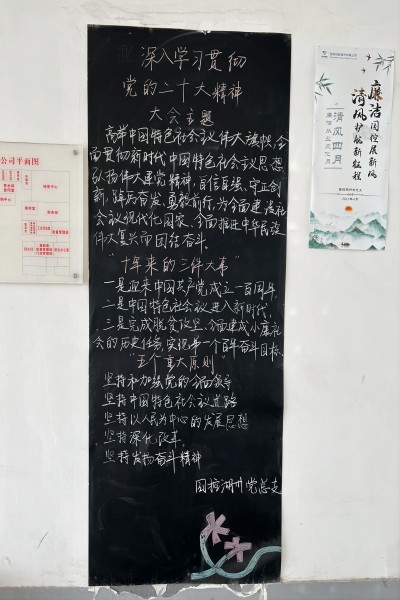 深入学习贯彻
党的二十大精神
大会主题
高举中国特色社会主义伟大旗帜,全
面贯彻新时代中国特色社会主义思想
弘扬伟大建党精神,自信自强、守正创
新,踔厉奋发、勇毅前行,为全面建设社
会主义现代化国家、全面推进中华民族
伟大复兴而团结奋斗。
"十年来的三件大事"
一是迎来中国共产党成立一百周年
二是中国特色社会主义进入新时代
三是完成脱贫攻坚、全面建成小康社
会的历史任务,实现第一个百年奋斗目标。
"五个重大原则"
坚持和加强党的全面领导
坚持中国特色社会主义道路
坚持以人民为中心的发展思想
坚持深化改革
坚持发扬奋斗精神
国控湖州党总支
公司平面图
廉洁国控展新风
清风护航新征程
清风四月